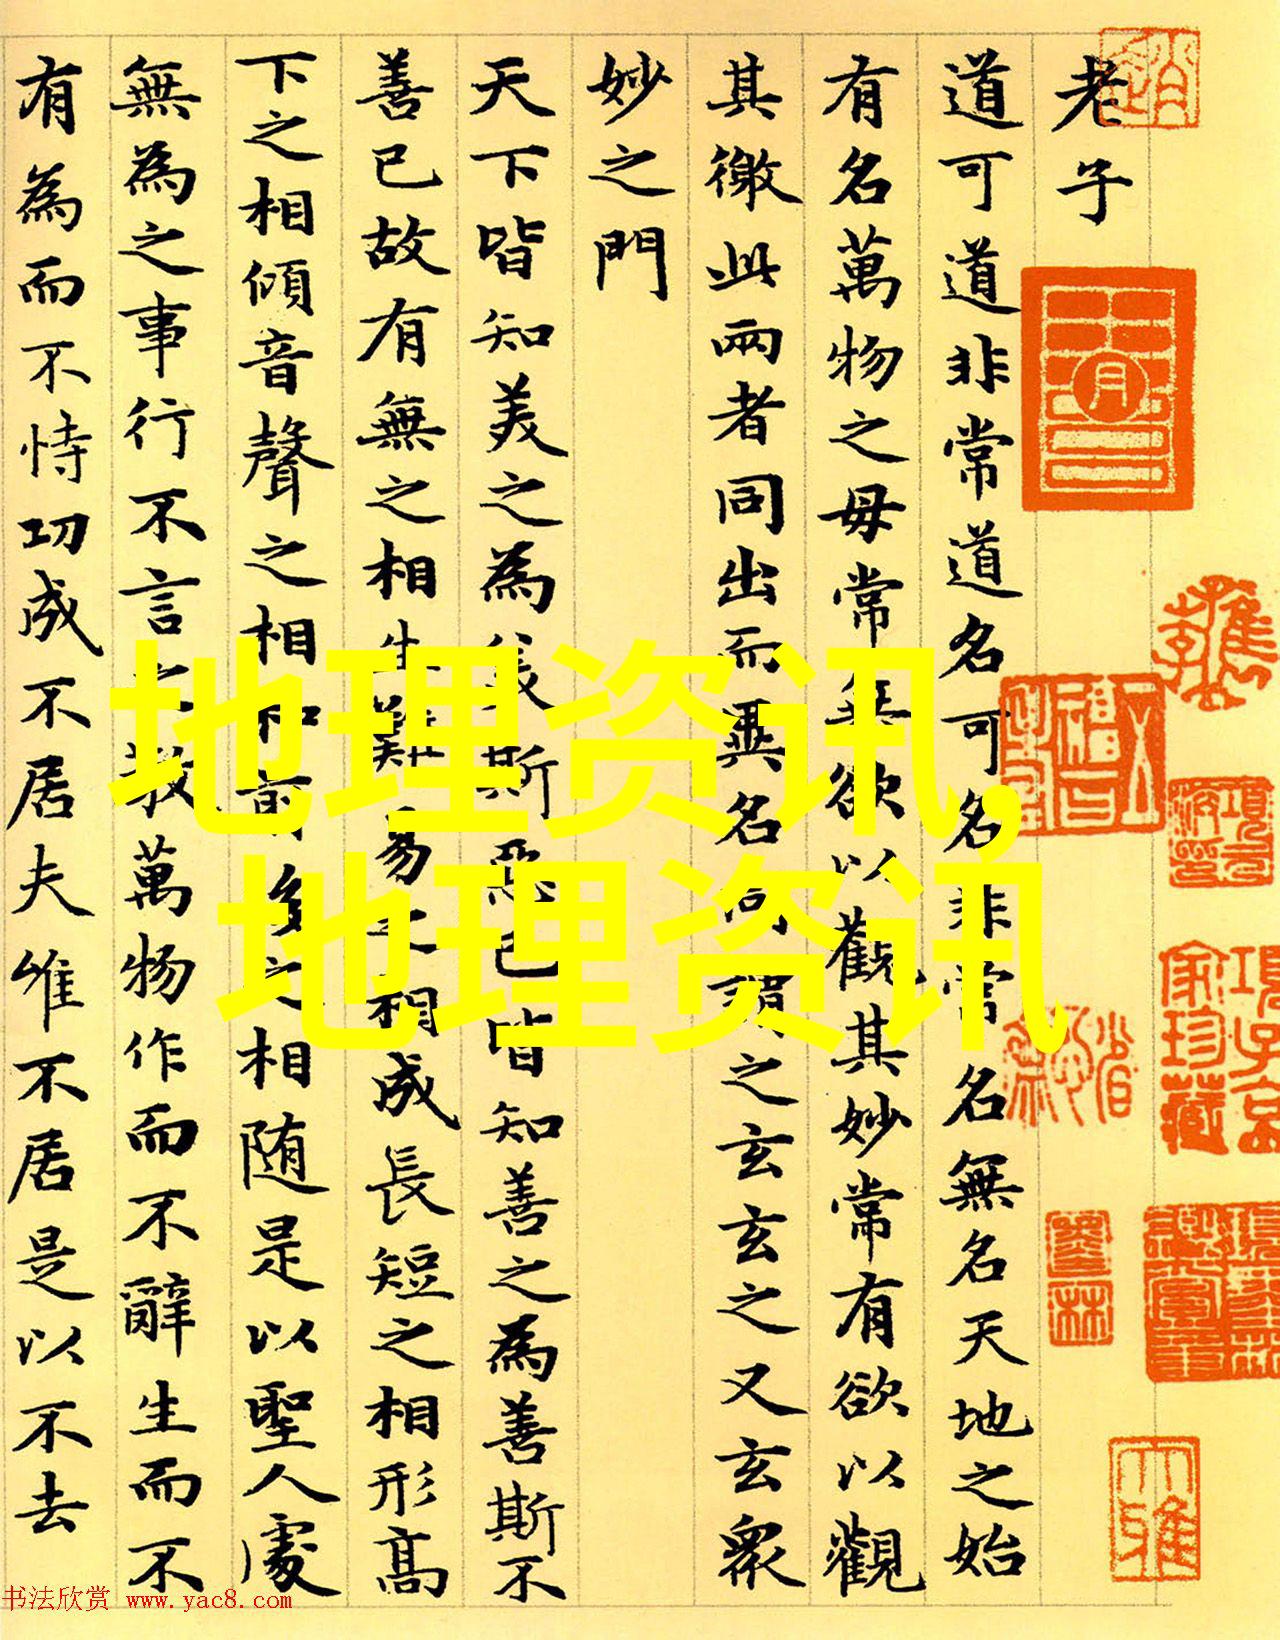 老子
道可道非常道名可名非常名無名天地之始
有名萬物之母常無欲以觀其妙常有欲以觀
其徼此兩者同出而異名同謂之玄玄之又玄衆
妙之門
天下皆知美之為美斯惡已皆知善之為善斯不
善已故有無之相生難易之相成長短之相形高
下之相傾音聲之相和前後之相随是以聖人處
無為之事行不言之教萬物作而不辭生而不
有為而不恃功成不居夫唯不居是以不去
地理资讯,
地理资讯
项子京
家珍藏
书法欣赏 www.yac8.com